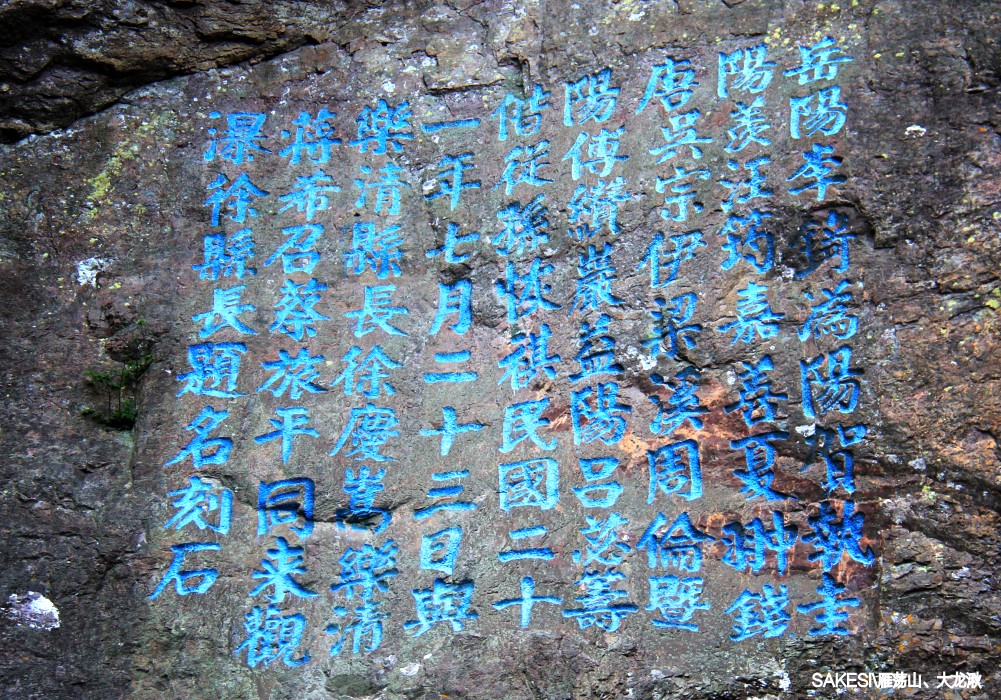 岳陽李錡潙陽賀執圭
陽羨汪筠嘉善夏翀鎧
唐吳宗伊梁溪周倫暨
陽傅纘嚴益陽呂苾籌
偕従孫恢祺民國二十
一年七月二十三日與
樂清縣長徐慶嵩樂清
蔣希召蔡旅平同来觀
瀑徐縣長題名刻石
SAKESI\雁荡山、大龙湫